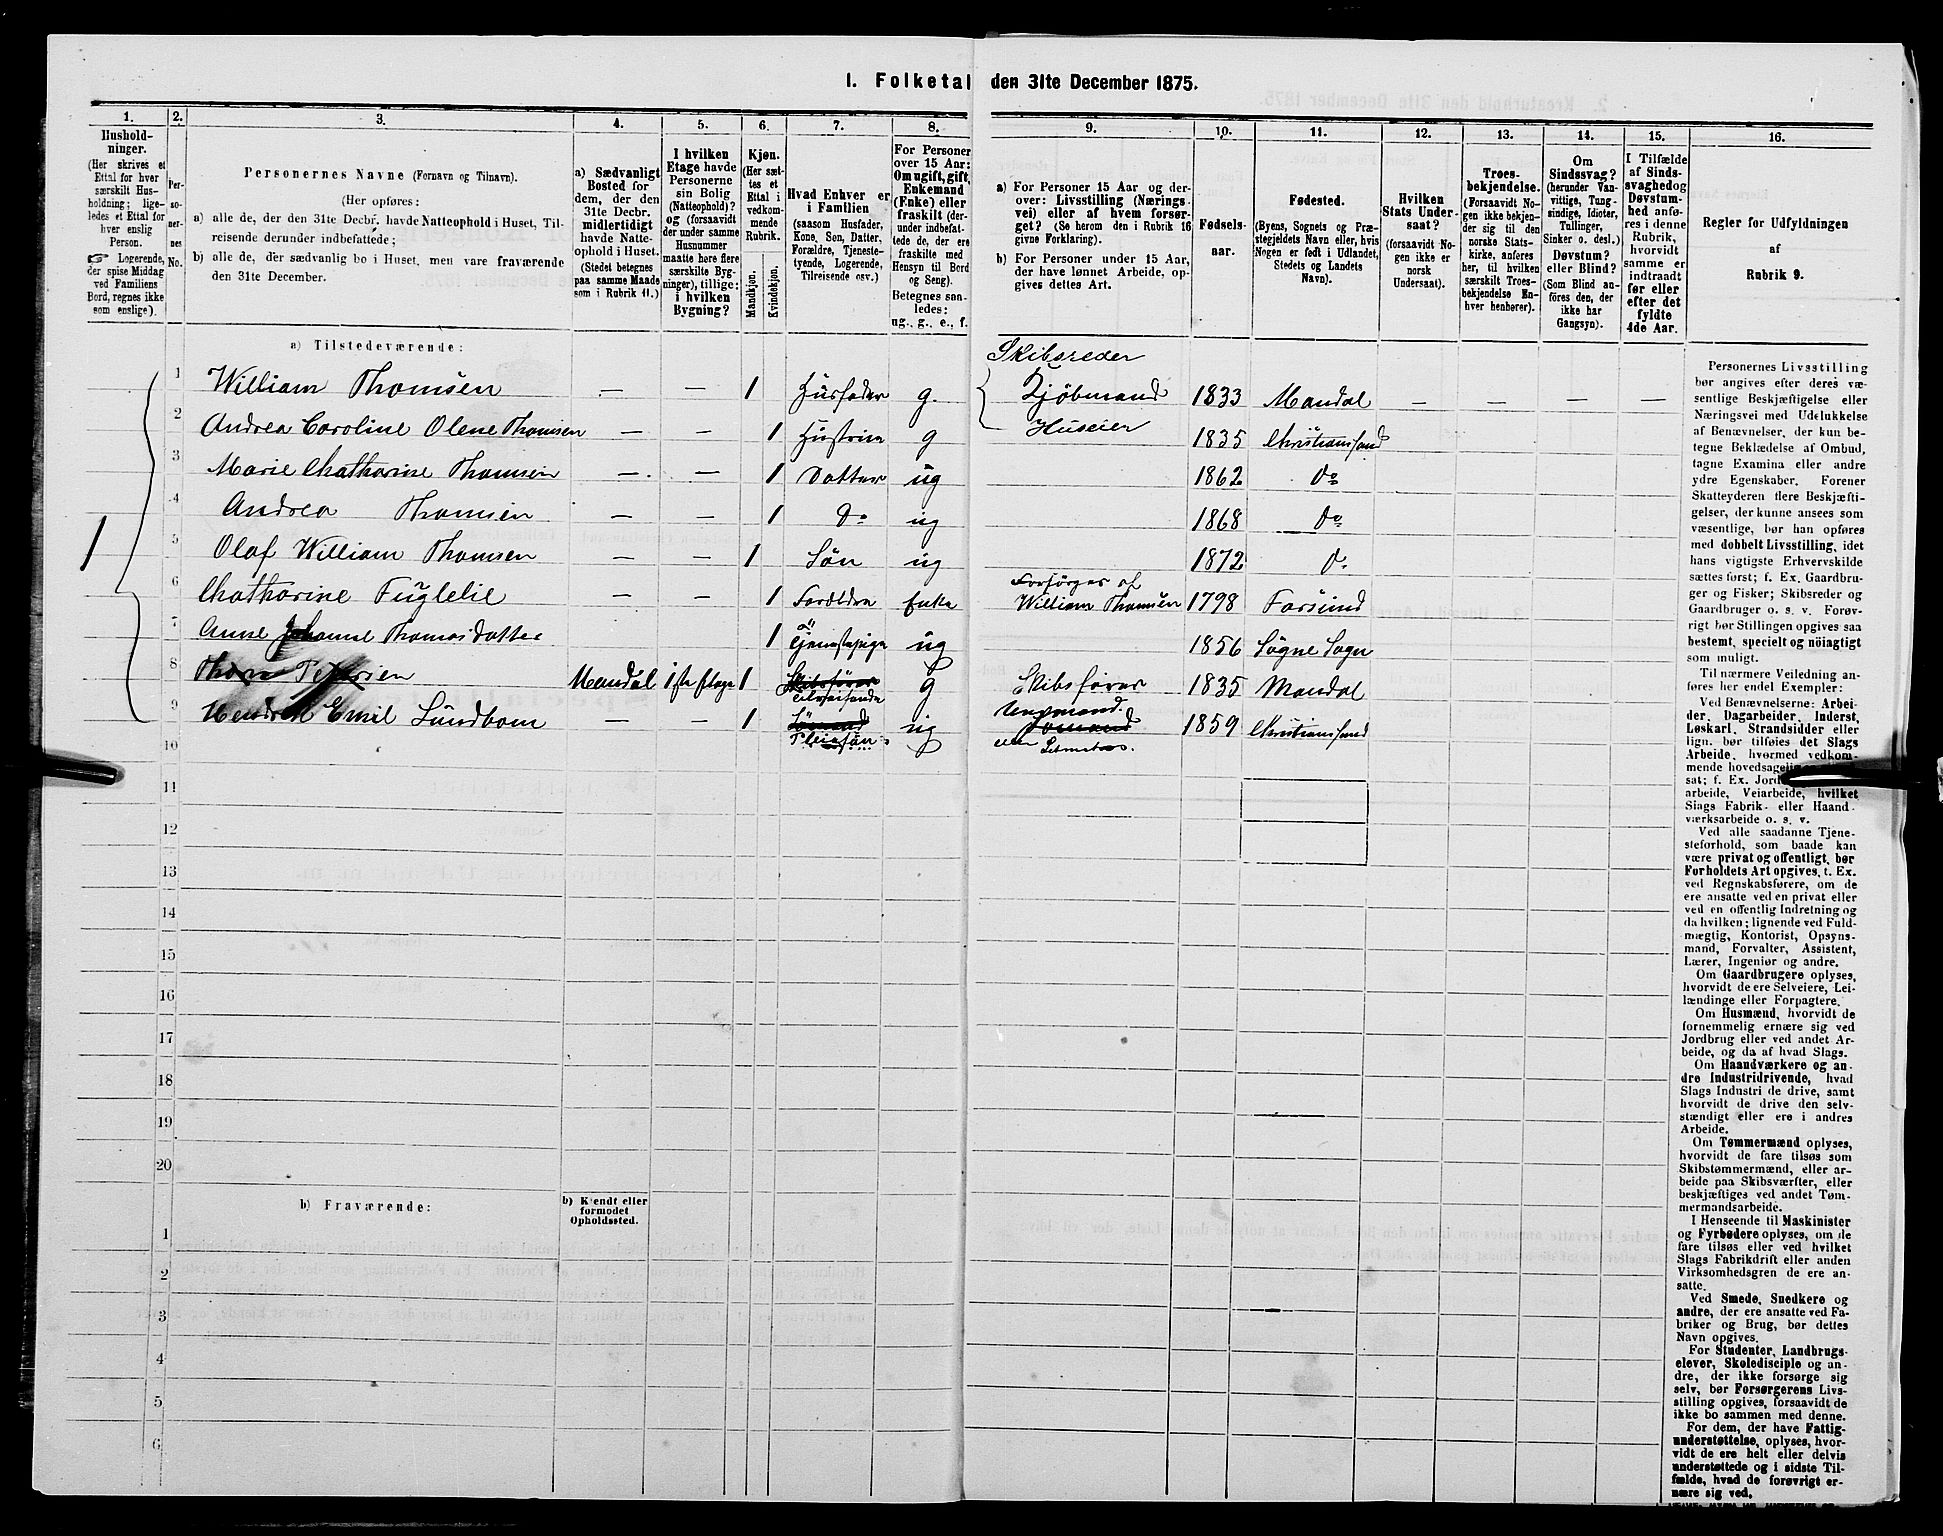 1. Folketal den 31te December 1875.
1.
2.
3.
4.
5.
6.
7.
8.
9.
10.
11.
12.
13.
14.
15.
16.
Hushold-
ninger.
(Her skrives et
Ettal for hver
særskilt Hus-
holdning; lige-
ledes et Ettal for
hver enslig
Person.
☞ Logerende,
der spise Middag
ved Familiens
Bord, regnes ikke
som enslige).
Per-
so-
ner-
nes
No.
Personernes Navne (Fornavn og Tilnavn).
(Her opføres:
a) alle de, der den 31te Decbr. havde Natteophold i Huset, Til-
reisende derunder indbefattede;
b) alle de, der sædvanlig bo i Huset, men vare fraværende
den 31te December.
a) Sædvanligt
Bosted for
dem, der den
31te Decbr.
midlertidigt
havde Natte-
ophold i Huset.
(Stedet betegnes
paa samme Maade
som i Rubrik 11.)
I hvilken
Etage havde
Personerne
sin Bolig
(Natteophold)?
og (forsaavidt
der under samme
Husnummer
maatte høre flere
særskilte Byg-
ninger), tillige:
i hvilken
Bygning?
Kjøn.
(Her sæt-
tes et
Ettal i
vedkom-
mende
Rubrik.
Mandkjøn.
Kvindekjøn.
Hvad Enhver er
i Familien
(saasom Husfader,
Kone, Søn, Datter,
Forældre, Tjeneste-
tyende, Logerende,
Tilreisende osv.)
For Personer
over 15 Aar:
Om ugift, gift,
Enkemand
(Enke) eller
fraskilt (der-
under indbefat-
tede de, der ere
fraskilte med
Hensyn til Bord
og Seng).
Betegnes saa-
ledes:
ug., g., e., f.
a) For Personer 15 Aar og der-
over: Livsstilling (Nærings-
vei) eller af hvem forsør-
get? (Se herom den i Rubrik 16
givne Forklaring).
b) For Personer under 15 Aar,
der have lønnet Arbeide, op-
gives dettes Art.
Fødsels-
aar.
Fødested.
(Byens, Sognets og Præ-
stegjeldets Navn eller, hvis
Nogen er født i Udlandet,
Stedets og Landets
Navn).
Hvilken
Stats Under-
saat?
(forsaavidt No-
gen ikke er
norsk
Undersaat).
Troes-
bekjendelse.
(Forsaavidt No-
gen ikke bekjen-
der sig til den
norske Stats-
kirke, anføres
her, til hvilken
særskilt Troes-
bekjendelse En-
hver henhører).
Om
Sindssvag?
(herunder Van-
vittige, Tung-
sindige, Idioter,
Tullinger,
Sinker o. desl.)
Døvstum?
eller Blind?
(Som Blind an-
føres den, der
ikke har
Gangsyn).
I Tilfælde
af Sinds-
svaghed og
Døvstum-
hed anfø-
res i denne
Rubrik,
hvorvidt
samme er
indtraadt
før eller
efter det
fyldte
4de Aar.
Regler for Udfyldningen
af
Rubrik 9.
a) Tilstedeværende:
Skibsreder
1 William Thomsen — — 1 Husfader g. Kjøbmand 1833 Mandal — — — —
2 Andrea Caroline Olene Thomsen 1 Hustru g Huseier 1835 Christianssand
3 Marie Chatharine Thomsen — — 1 Datter ug 1862 Do
4 Andrea Thomsen — — 1 Do ug 1868 Do
1 5 Olaf William Thomsen — — 1 Søn ug 1872 Do
Forsørges af
6 Chatharine Fuglelie 1 Forældre Enke William Thomsen 1798 Farsund
7 Anne Johanne Thomasdatter 1 Tjenestepige ug 1856 Søgne Sogn
8 Thom Petersen Mandal 1ste Etage 1 Skibsfører g Skibsfører 1835 Mandal
Tilreisende
9 Hendrik Emil Lundbom — — 1 Sømand ug Ungmand 1859 Christianssand
Pleiesøn Sømand
eller Letmatros.
10
11
12
13
14
15
16
17
18
19
20
b) Fraværende:
b) Kjendt eller
formodet
Opholdssted.
1
2
3
4
5
6
Personernes Livsstilling
bør angives efter deres væ-
sentlige Beskjæftigelse eller
Næringsvei med Udelukkelse
af Benævnelser, der kun be-
tegne Beklædelse af Ombud,
tagne Examina eller andre
ydre Egenskaber. Forener
Skatteyderen flere Beskjæfti-
gelser, der kunne ansees som
væsentlige, bør han opføres
med dobbelt Livsstilling, idet
hans vigtigste Erhvervskilde
sættes først; f. Ex. Gaardbru-
ger og Fisker; Skibsreder og
Gaardbruger o. s. v. Forøv-
rigt bør Stillingen opgives saa
bestemt, specielt og nöiagtigt
som muligt.
Til nærmere Veiledning an-
føres her endel Exempler:
Ved Benævnelserne: Arbei-
der, Dagarbeider, Inderst,
Løskarl, Strandsidder eller
lign. bør tilføies det Slags
Arbeide, hvormed vedkom-
mende hovedsagelig
sat; f. Ex. Jord
arbeide, Veiarbeide, hvilket
Slags Fabrik- eller Haand-
værksarbeide o. s. v.
Ved alle saadanne Tjene-
steforhold, som baade kan
være privat og offentligt, bør
Forholdets Art opgives, t. Ex.
ved Regnskabsførere, om de
ere ansatte ved en privat eller
ved en offentlig Indretning og
da hvilken; lignende ved Fuld-
mægtig, Kontorist, Opsyns-
mand, Forvalter, Assistent,
Lærer, Ingeniør og andre.
Om Gaardbrugere oplyses,
hvorvidt de ere Selveiere, Lei-
lændinge eller Forpagtere.
Om Husmænd, hvorvidt de
fornemmelig ernære sig ved
Jordbrug eller ved andet Ar-
beide, og da af hvad Slags.
Om Haandværkere og an-
dre Industridrivende, hvad
Slags Industri de drive, samt
hvorvidt de drive den selv-
stændigt eller ere i andres
Arbeide.
Om Tømmermænd oplyses,
hvorvidt de fare tilsøs som
Skibstømmermænd, eller ar-
beide paa Skibsværfter, eller
beskjæftiges ved andet Tøm-
mermandsarbeide.
I Henseende til Maskinister
og Fyrbødere oplyses, om de
fare tilsøs eller ved hvilket
Slags Fabrikdrift eller anden
Virksomhedsgren de ere an-
satte.
Ved Smede, Snedkere og
andre, der ere ansatte ved Fa-
briker og Brug, bør dettes
Navn opgives.
For Studenter, Landbrugs-
elever, Skoledisciple og an-
dre, der ikke forsørge sig
selv, bør Forsørgerens Livs-
stilling opgives, forsaavidt de
ikke bo sammen med denne.
For dem, der have Fattig-
understøttelse, oplyses, hvor-
vidt de ere helt eller delvis
understøttede og i sidste Til-
fælde, hvad de forøvrigt er-
nære sig ved.